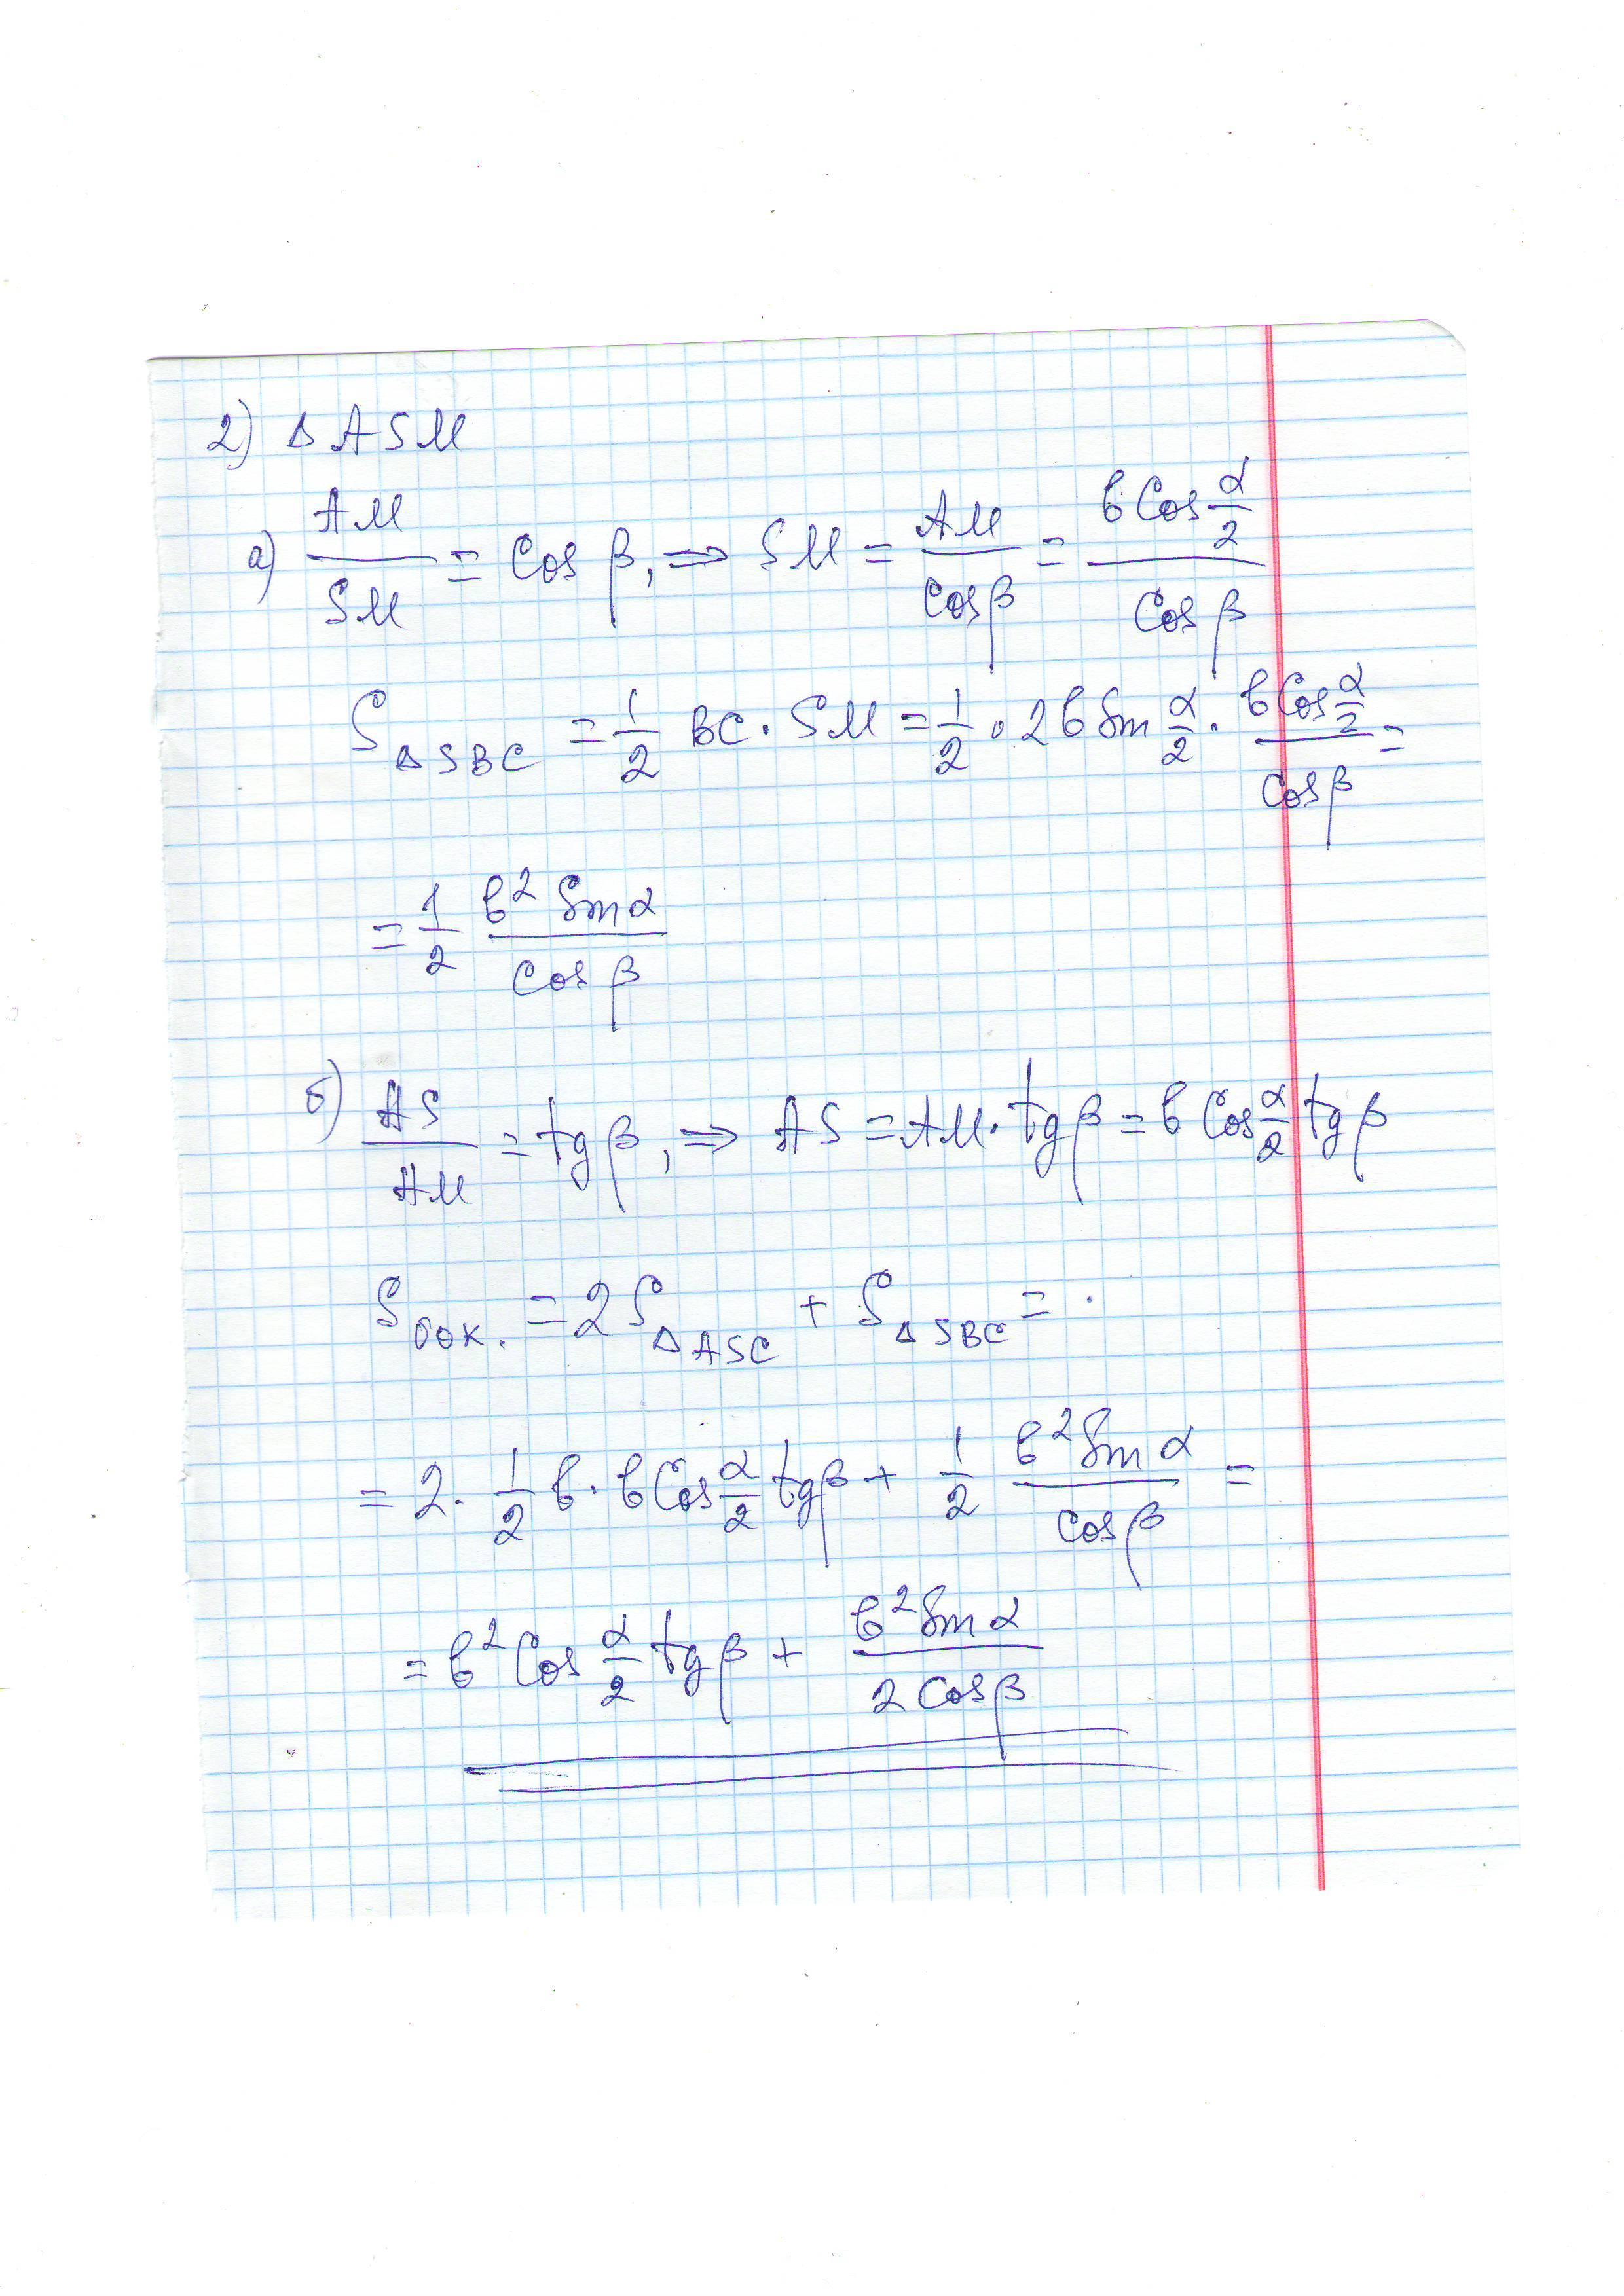 2) Δ ASM
а) AM/SM = Cos β, ⇒ SM = AM/Cosβ = (в Cos α/2)/(Cos β)
S ΔSBC = 1/2 BC · SM = 1/2 · 2в Sin α/2 · (в Cos α/2)/(Cosβ) =
= 1/2 (в² Sin α)/(Cos β)
б) AS/AM = tg β, ⇒ AS = AM · tg β = в Cos α/2 tg β
S бок. = 2 S ΔASC + S ΔSBC =
= 2 · 1/2 в · в Cos α/2 tgβ + 1/2 (в² Sin α)/(Cosβ) =
= в² Cos α/2 tg β + (в² Sin α)/(2 Cosβ)